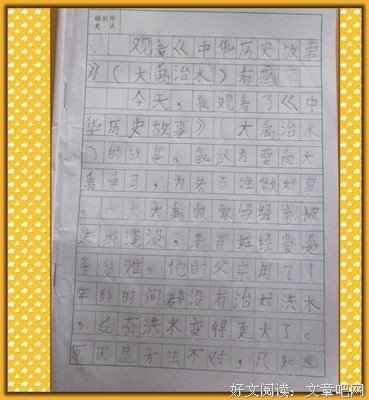 错别字
更正
观看《中华历史故事
》(大禹治水)有感
今天,我观看了《中
华历史故事》(大禹治水
)的故事。我认为要向大
禹学习,为老百姓做好事
。大禹的家经常被
洪水淹没,老百姓经
苦难。他的父亲用了
年的时间都没有治好洪水
,反而洪水变得更大了。
原因是方法不对,只知道
好文阅读:文章吧网